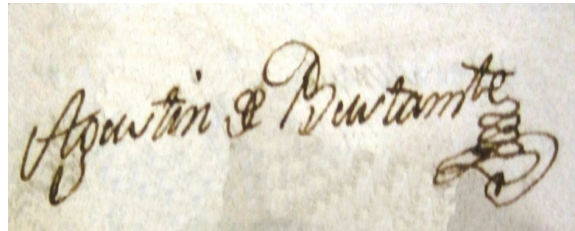 Agustin de Bustamte